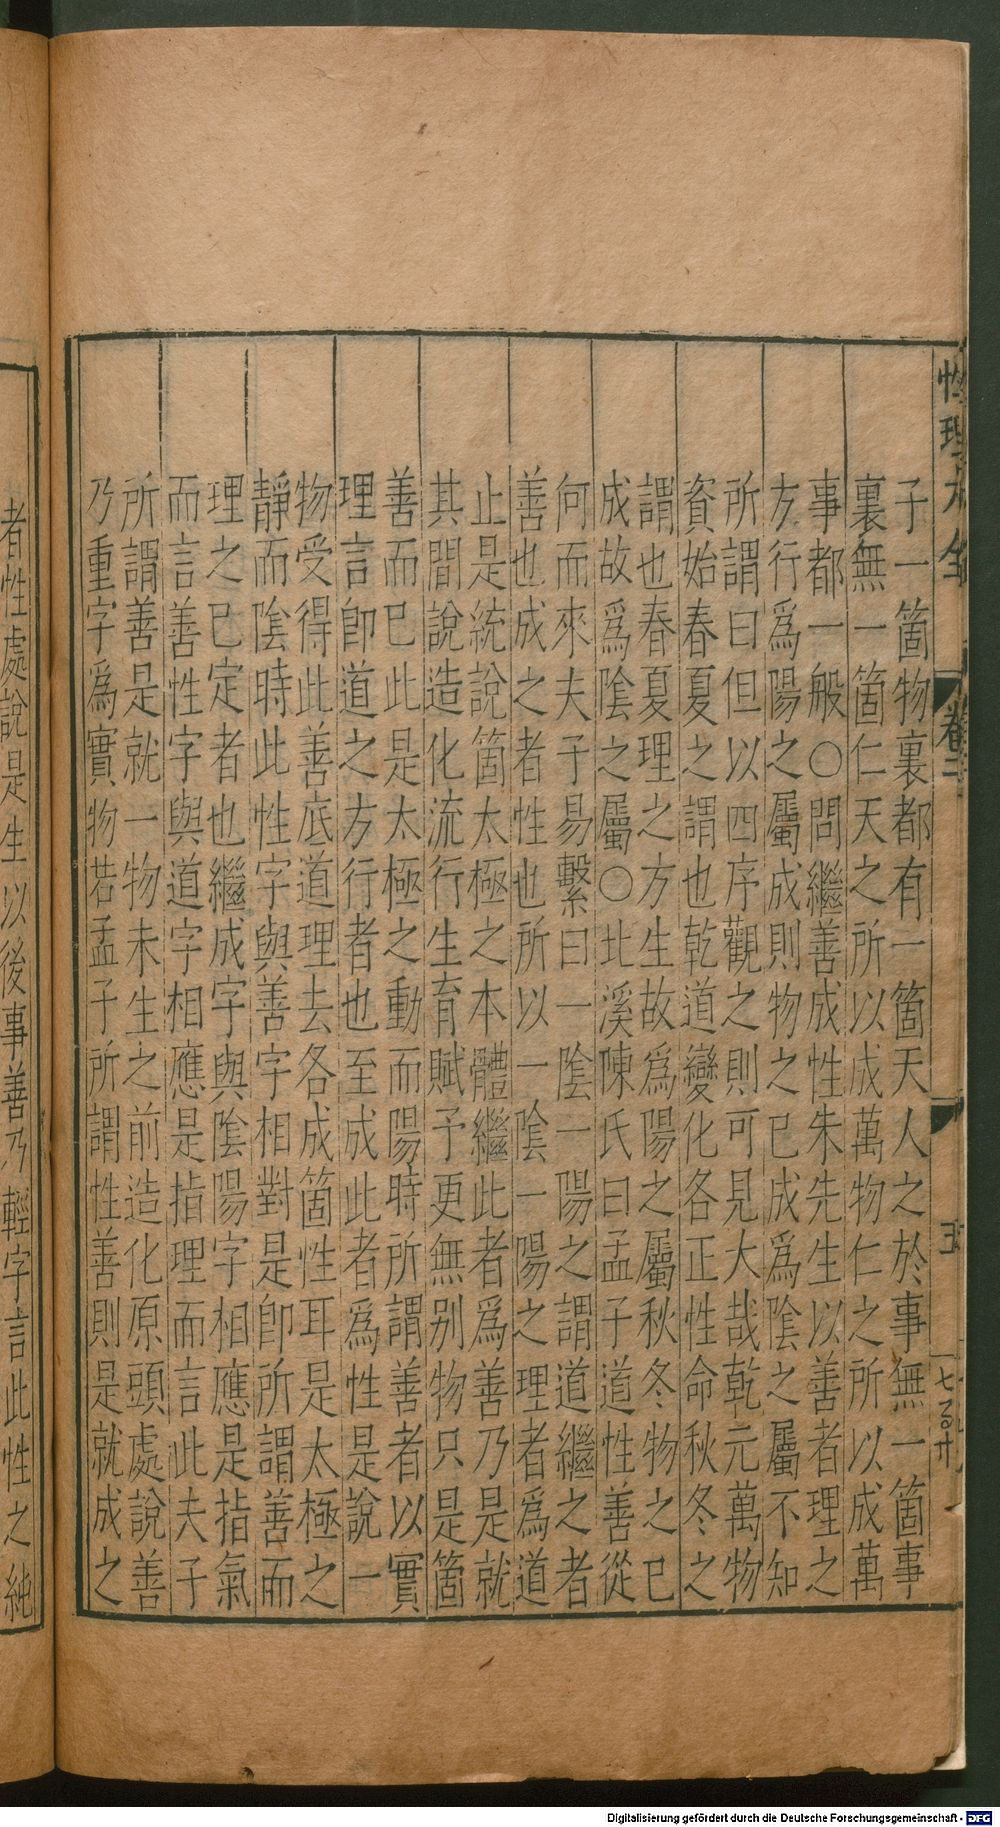 性理大全
卷二
五
子一箇物裏都有一箇天人之於事無一箇事
裏無一箇仁天之所以成萬物仁之所以成萬
事都一般○問繼善成性朱先生以善者理之
方行爲陽之屬成則物之已成爲陰之屬不知
所謂曰但以四序觀之則可見大哉乾元萬物
資始春夏之謂也乾道變化各正性命秋冬之
謂也春夏理之方生故爲陽之屬秋冬物之已
成故爲陰之屬○北溪陳氏曰孟子道性善從
何而來夫子易繫曰一陰一陽之謂道繼之者
善也成之者性也所以一陰一陽之理者爲道
止是統說箇太極之本體繼此者爲善乃是就
其間說造化流行生育賦予更無别物只是箇
善而已此是太極之動而陽時所謂善者以實
理言卽道之方行者也至成此者爲性是說一
物受得此善底道理去各成箇性耳是太極之
靜而陰時此性字與善字相對是卽所謂善而
理之已定者也繼成字與陰陽字相應是指氣
而言善性字與道字相應是指理而言此夫子
所謂善是就一物未生之前造化原頭處說善
乃重字爲實物若孟子所謂性善則是就成之
者性處說是生以後事善乃輕字言此性之純
Digitalisierung gefördert durch die Deutsche Forschungsgemeinschaft - DFG